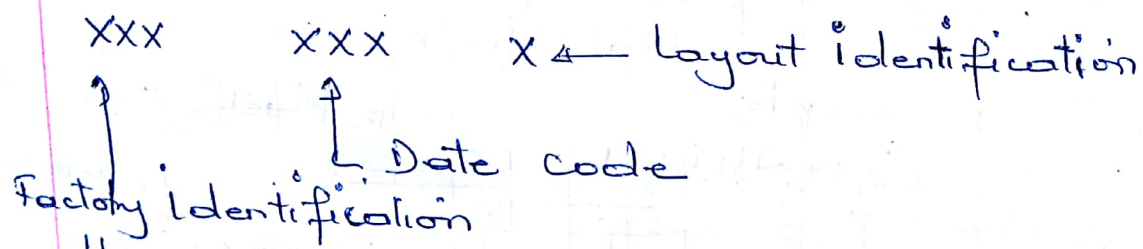 XXX XXX X ← Layout identification
Date code
Factory identification